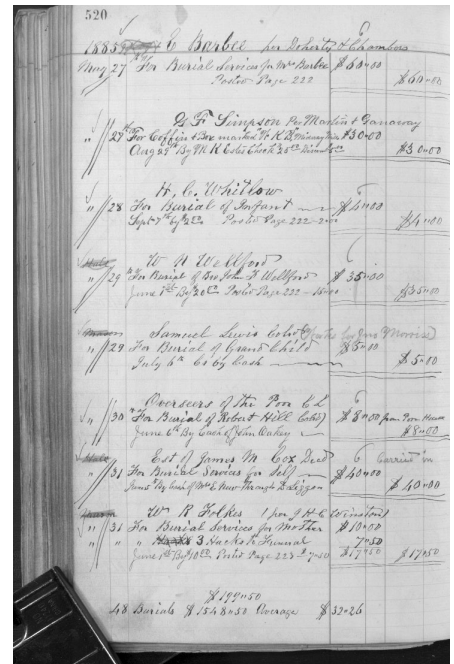 520
1885 E Barbee per Doherty & Chambers
May 27th For Burial Services for Mrs Barbee $60"00
Posted Page 222 $60"00
F Simpson Per Martin &
" 27th For Coffin & Box marked $30"00
Aug 29th By M K Estes Check $30"00
H. C. Whitlow
" 28 For Burial of Infant $4"00
Sept 7th Posted Page 222 $4"00
W N Wellford
" 29 For Burial of John Wellford $35"00
June 1st By Posted Page 222 $35"00
Samuel Lewis Cold
" 29 For Burial of Grand Child $5"00
July 6th Cr by Cash $5"00
Overseers of the Poor
" 30 For Burial of Robert Hill $8"00 from Poor House
June 6th By Cash of Oakey $8"00
Est of James M Cox Decd
" 31 For Burial Services for Self $40"00
June By Cash of Mrs E New Through Liggon $40"00
Wm R Folkes per J H C Winston
" 31 For Burial Services for Mother $10"00
" " 3 Hacks to Funeral 7"50
June 1st By Posted Page 223 $17"50 $17"50
$199"50
48 Burials $1548"50 Average $32"26